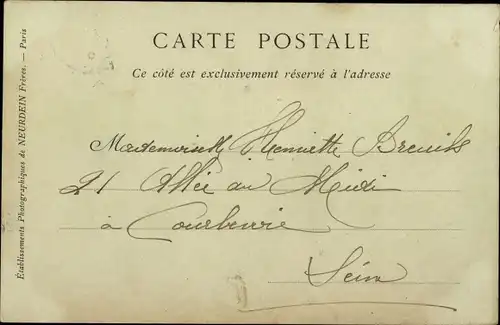 CARTE POSTALE
Ce côté est exclusivement réservé à l'adresse
Mademoiselle Henriette
21 Allée du Midi
à Courbevoie
Seine
Établissements Photographiques de NEURDEIN Frères. — Paris